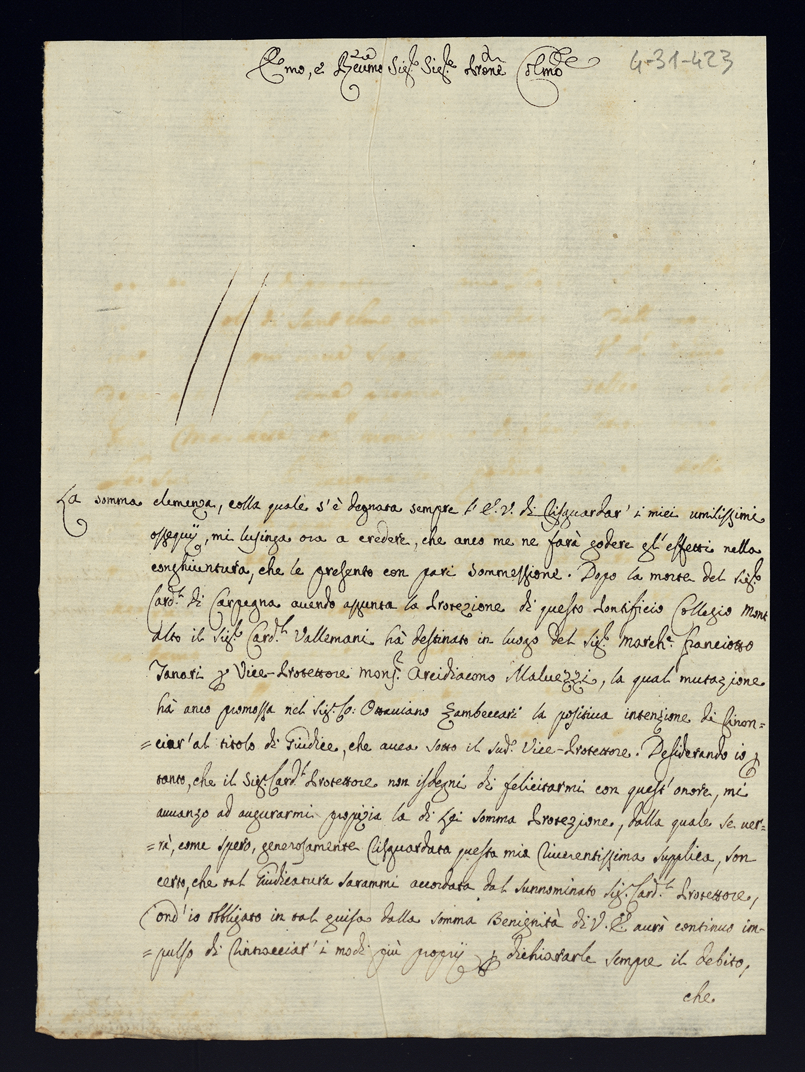 Emo, e Reumo Sig.r Sig.r Prone Colmo
4-31-423
La somma clemenza, colla quale s'è degnata sempre l'E. V. di risguardar' i miei umilissimi
ossequij, mi lusinga ora a credere, che anco me ne farà godere gl'effetti nella
conghiuntura, che le presento con pari sommessione. Dopo la morte del Sig.r
Card.l di Carpegna avendo assunta la Protezione di questo Pontificio Collegio Mont
alto il Sig.r Card.l Vallemani hà destinato in luogo del Sig.r March.e Franciotto
Tanari p Vice-Protettore Mons.r Arcidiacono Malvezzi, la qual mutazione
hà anco promossa nel Sig.r Co: Ottaviano Zambeccari la positiva intenzione di rinon=
=ciar' al titolo di Giudice, che avea sotto il sud.o Vice-Protettore. Desiderando io p
tanto, che il Sig.r Card.l Protettore non isdegni di felicitarmi con quest'onore, mi
avvanzo ad augurarmi propizia la di Lei somma Protezione, dalla quale se ver=
=rà, come spero, generosamente risguardata questa mia riverentissima supplica, son
certo, che tal Giudicatura sarammi accordata dal sunnominato Sig.r Card.l Protettore,
ond'io obbligato in tal guisa dalla somma Benignità di V. E. avrò continuo im=
=pulso di rintracciar' i modi più proprij p dichiararle sempre il debito,
che